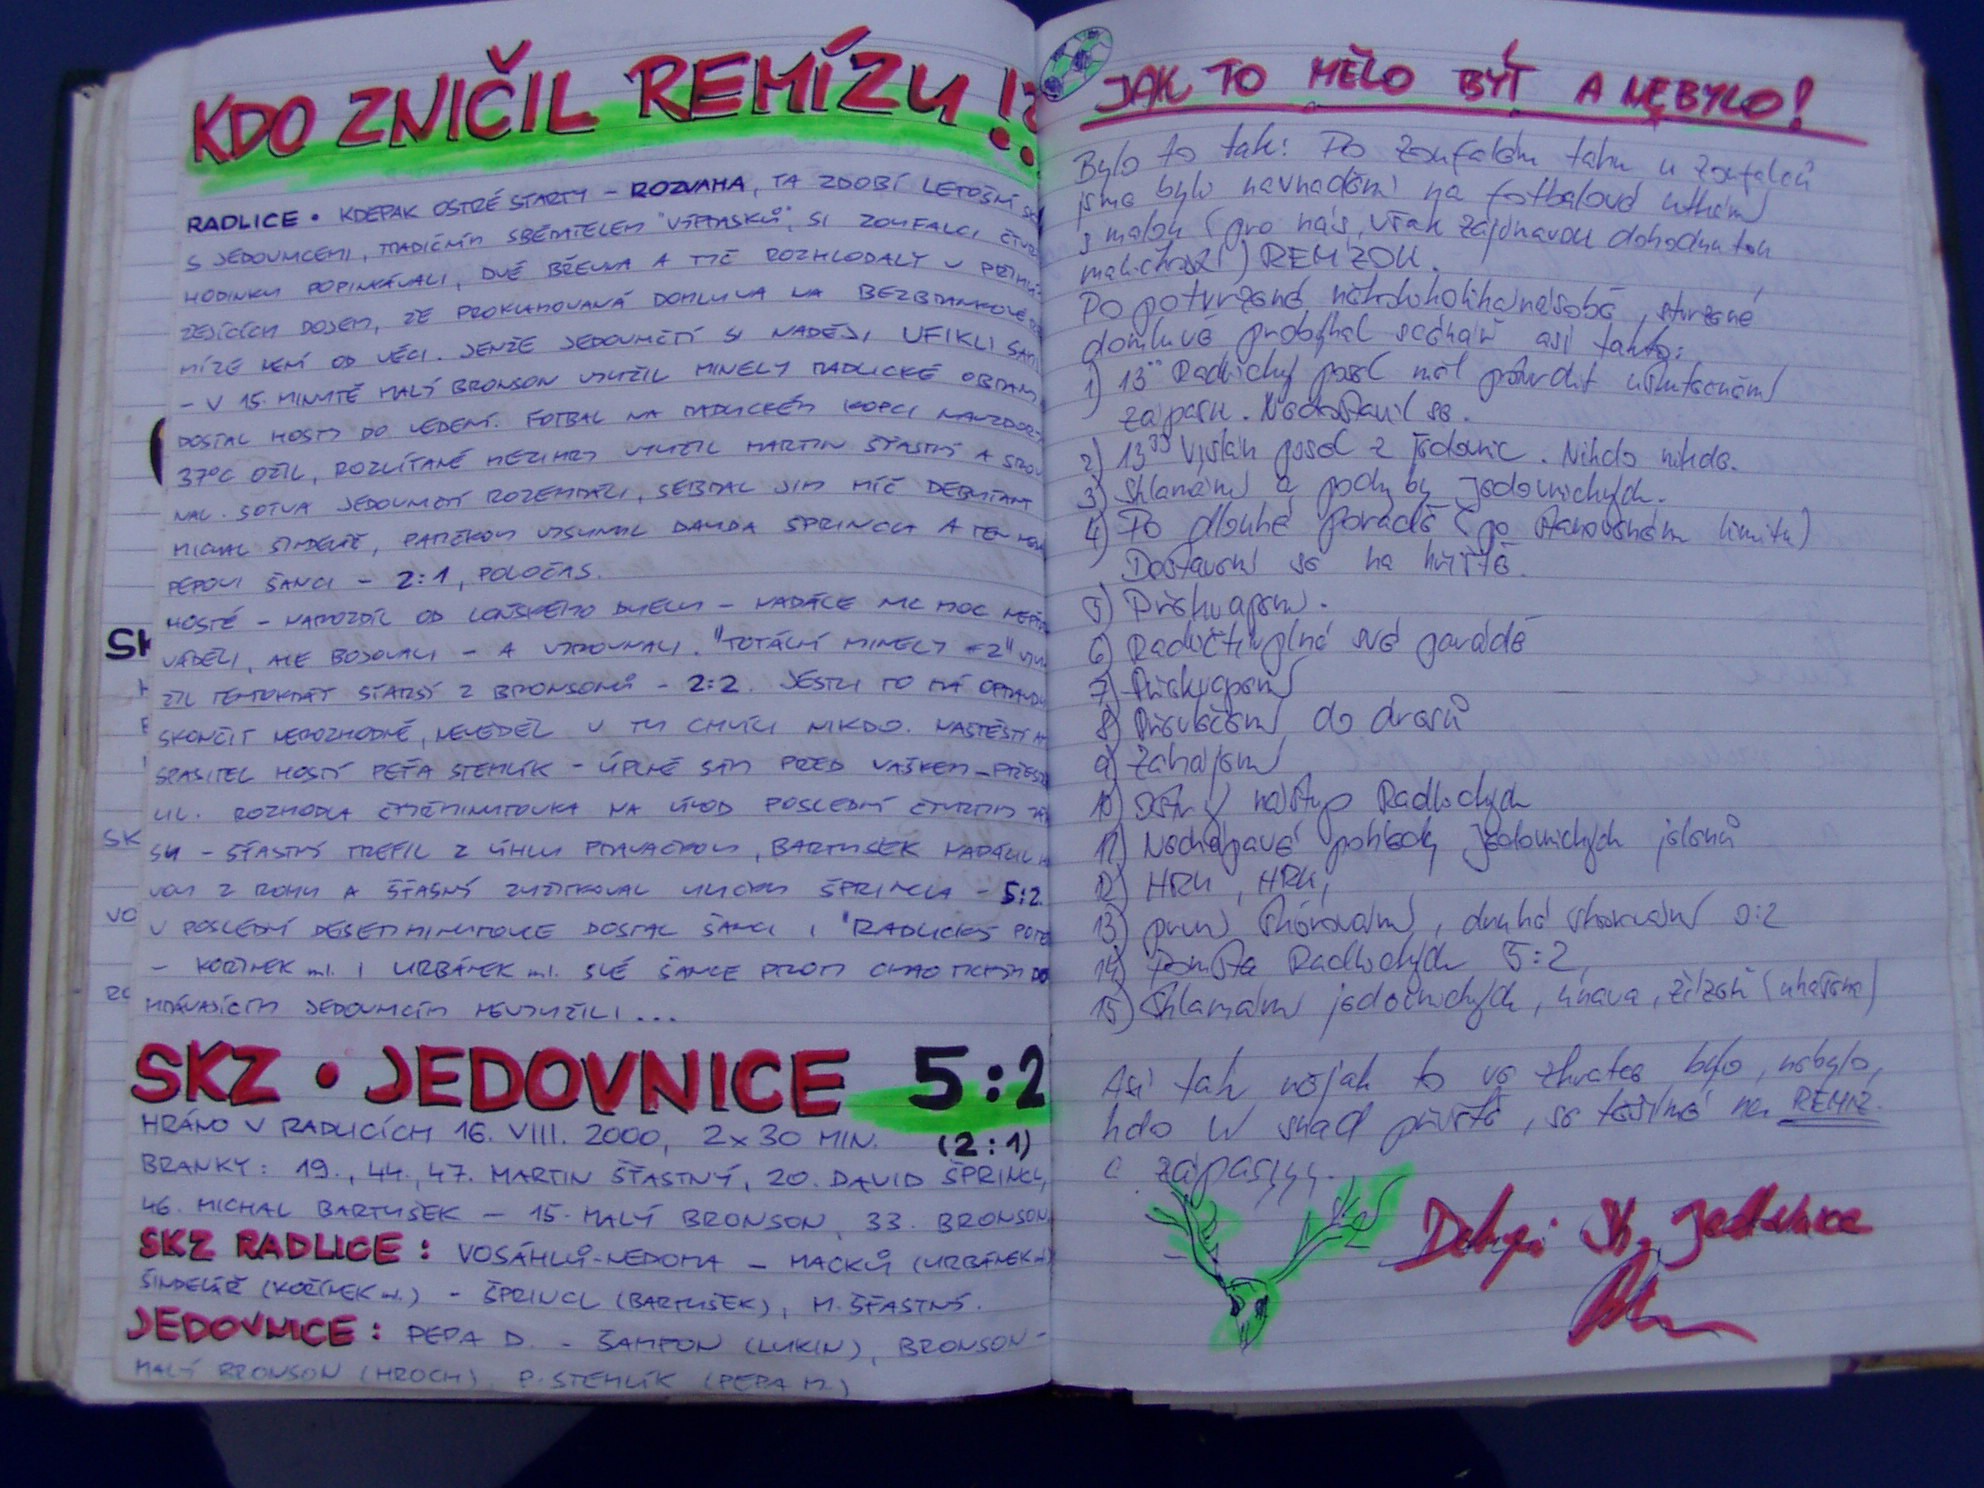 KDO ZNIČIL REMÍZU !?
RADLICE • KDEPAK OSTRÉ STARTY – ROZVAHA, TA ZDOBÍ LETOŠNÍ
S JEDOVNICEMI, TRADIČNÍM SBĚRATELEM "VÝPRASKŮ", SI ZOUFALCI
HODINKU POPINKÁVALI, DVĚ BŘEVNA A TYČ ROZHLODALY V
DOJEM, ŽE PROKLAMOVANÁ DOMLUVA NA BEZBRANKOVÉ
MÍZE NENÍ OD VĚCI. JENŽE JEDOVNIČTÍ SI NADĚJI UFIKLI SAMI
– V 15. MINUTĚ MALÝ BRONSON VYUŽIL MINELY RADLICKÉ OBRANY
DOSTAL HOSTY DO VEDENÍ. FOTBAL NA RADLICKÉM KOPCI NAVZDORY
37°C OŽIL, ROZLÍTANÉ MEZIHRY VYUŽIL MARTIN ŠŤASTNÝ A SROV
NAL. SOTVA JEDOVNIČTÍ ROZEHRÁLI, SEBRAL JIM MÍČ DEBUTANT
MICHAL ŠINDELÁŘ, PATIČKOU VYSUNUL DAVIDA ŠPRINCLA A TEN
PEPOVI ŠANCI – 2:1, POLOČAS.
HOSTÉ – NAROZDÍL OD LOŇSKÉHO DUELU – NADÁLE NIC MOC
VÁDĚLI, ALE BOJOVALI – A VYROVNALI. "TOTÁLNÍ MINELY =2"
ŽIL TENTOKRÁT STARŠÍ Z BRONSONŮ – 2:2. JESTLI TO MÁ OPRAVDU
SKONČIT NEROZHODNĚ, NEVĚDĚL V TU CHVÍLI NIKDO. NAŠTĚSTÍ
SPASITEL HOSTÍ PEŤA STEHLÍK – ÚPLNĚ SÁM PŘED VAŠKEM – PŘESTŘE
LIL. ROZHODLA ČTYŘMINUTOVKA NA ÚVOD POSLEDNÍ ČTVRTINY ZÁ
SU – ŠŤASTNÝ TREFIL Z ÚHLU PRAVAČKOU, BARTUŠEK
VOU Z ROHU A ŠŤASNÝ ZUŽITKOVAL ULIČKU ŠPRINCLA – 5:2.
V POSLEDNÍ DESETIMINUTOVCE DOSTAL ŠANCI I "RADLICKÝ POTĚ
– KOŘÍNEK ml. I URBÁNEK ml. SVÉ ŠANCE PROTI CHAOTICKÝM DO
HRÁVAJÍCÍM JEDOVNICÍM NEVYUŽILI ...
SKZ • JEDOVNICE 5:2
HRÁNO V RADLICÍCH 16. VIII. 2000, 2 x 30 MIN. (2:1)
BRANKY: 19., 44., 47. MARTIN ŠŤASTNÝ, 20. DAVID ŠPRINCL,
46. MICHAL BARTUŠEK – 15. MALÝ BRONSON, 33. BRONSON
SKZ RADLICE: VOSÁHLŮ-NEDOMA – MACKŮ (URBÁNEK
ŠINDELÁŘ (KOŘÍNEK ml.) – ŠPRINCL (BARTUŠEK), M. ŠŤASTNÝ.
JEDOVNICE: PEPA D. – ŠAMPON (LUKIN), BRONSON –
MALÝ BRONSON (HROCH), P. STEHLÍK (PEPA M.)
JAK TO MĚLO BÝT A NEBYLO!
Bylo to tak: Po zoufalém tahu u Zoufalců
jsme bylo navnaděni na fotbalové utkání
s malou (pro nás, však zajímavou dohodnutou
) REMÍZOU.
Po potvrzené několikolikanásobě, stvrzené
domluvě probíhal scénář asi takto:
1) 13°° Radlický posel měl potvrdit uskutečnění
zápasu. Nedostavil se.
2) 13³³ Vyslán posel z Jedovnic. Nikdo nikde.
3) Sklamání a pochyby Jedovnických.
4) Po dlouhé poradě (po stanoveném limitu)
Dostavení se na hřiště.
5) Překvapení.
6) Radličtí v plné své parádě
7) Překvapení
8) Převlečení do dresů
9) Zahájení
10) Ostrý nástup Radlických
11) Nechápavé pohledy Jedovnických jelenů
12) HRU, HRU,
13) první skórování, druhé skorování 0:2
14) Pomsta Radlických 5:2,
15) Sklamání jedovnických, únava, žízeň (uhašena)
Asi tak nějak to ve zkratce bylo, nebylo,
kdo ví snad příště, se těšíme na REMÍZ.
C. zápasyyy.
Jedovnice